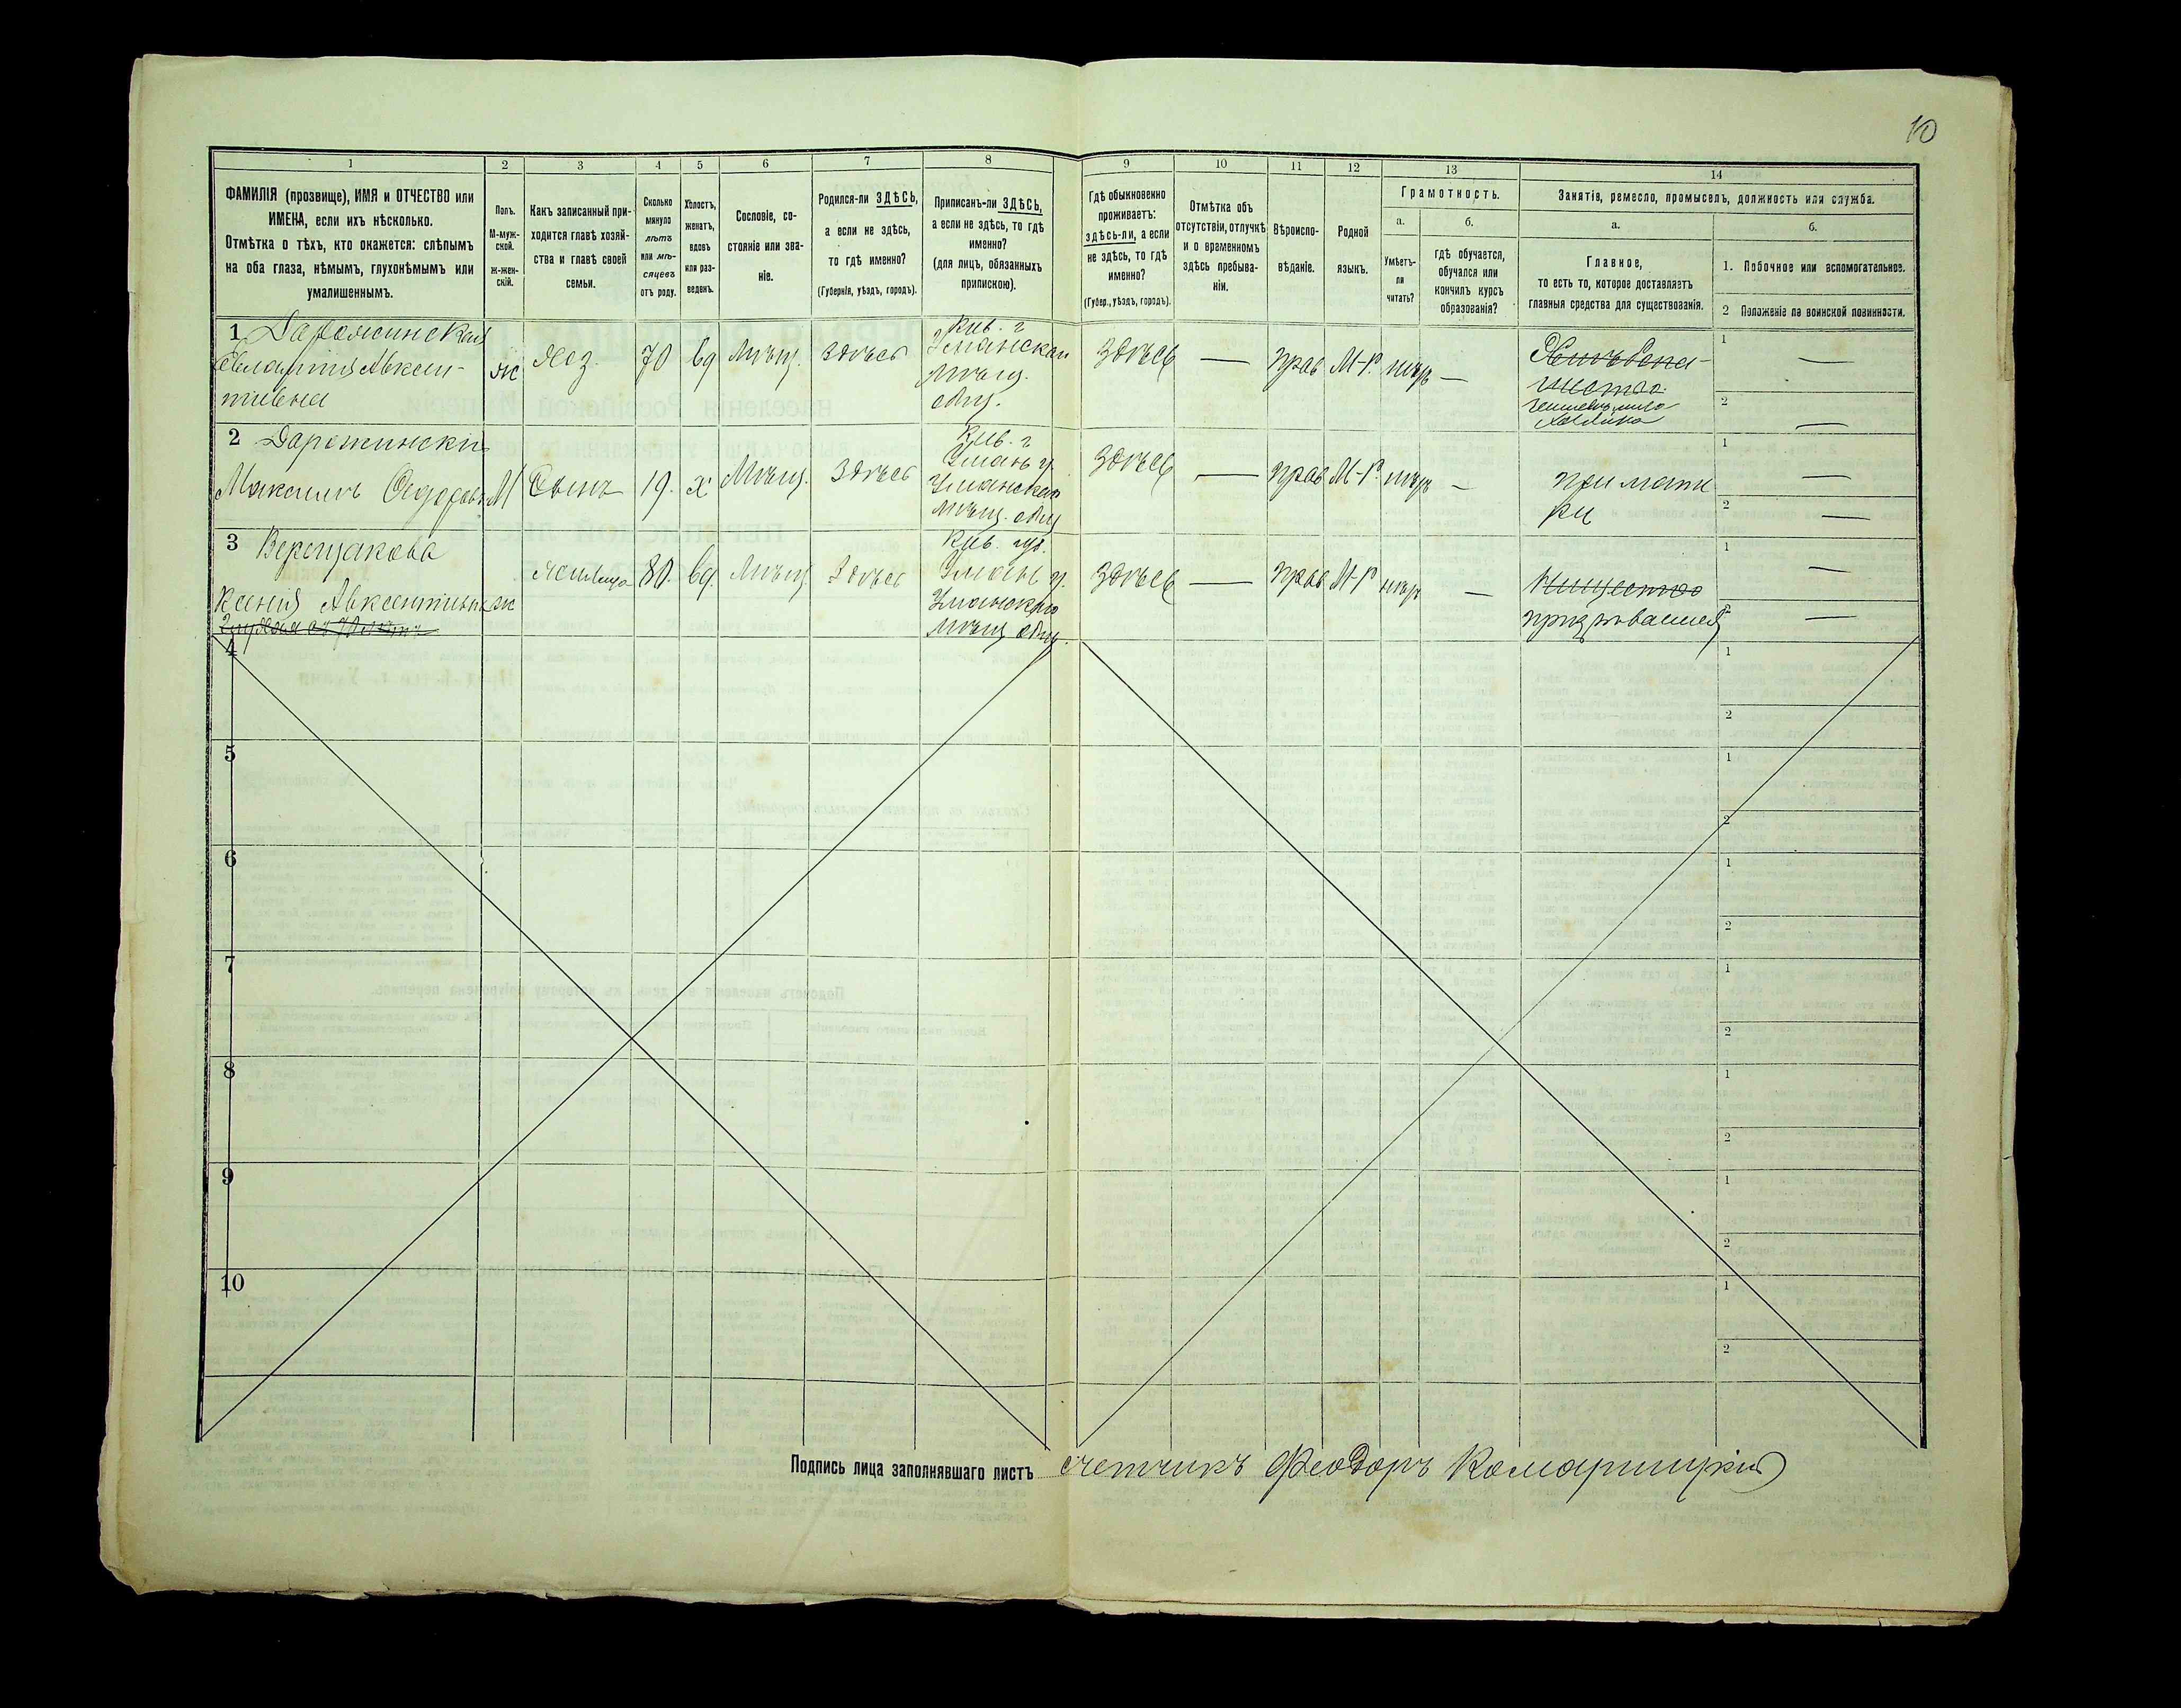 10
1 2 3 4 5 6 7 8 9 10 11 12 13 14
ФАМИЛІЯ (прозвище), ИМЯ и ОТЧЕСТВО или
ИМЕНА, если ихъ нѣсколько.
Отмѣтка о тѣхъ, кто окажется: слѣпымъ
на оба глаза, нѣмымъ, глухонѣмымъ или
умалишеннымъ.
Полъ.
М-муж-
ской.
ж-жен-
скій.
Какъ записанный при-
ходится главѣ хозяй-
ства и главѣ своей
семьи.
Сколько
минуло
лѣтъ
или мѣ-
сяцевъ
отъ роду.
Холостъ,
женатъ,
вдовъ
или раз-
веденъ.
Сословіе, со-
стояніе или зва-
ніе.
Родился-ли ЗДѢСЬ,
а если не здѣсь,
то гдѣ именно?
(Губернія, уѣздъ, городъ).
Приписанъ-ли ЗДѢСЬ,
а если не здѣсь, то гдѣ
именно?
(для лицъ, обязанныхъ
припискою).
Гдѣ обыкновенно
проживаетъ:
здѣсь-ли, а если
не здѣсь, то гдѣ
именно?
(Губер., уѣздъ, городъ).
Отмѣтка объ
отсутствіи, отлучкѣ
и о временномъ
здѣсь пребыва-
ніи.
Вѣроиспо-
вѣданіе.
Родной
языкъ.
Грамотность.
а.
Умѣетъ-
ли
читать?
б.
гдѣ обучается,
обучался или
кончилъ курсъ
образованія?
Занятіе, ремесло, промыселъ, должность или служба.
а.
Главное,
то есть то, которое доставляетъ
главныя средства для существованія.
б.
1. Побочное или вспомогательное.
2 Положеніе по воинской повинности.
1
Авксен-
тіевна
ж хоз. 70 вд мѣщ. здѣсь
Кіев. г
Уманскаго
мѣщ.
общ.
здѣсь — прав М-Р. нѣтъ —
1 —
2 —
2 Дарожинскій
Максимъ Федоров
М Сынъ 19. х мѣщ. здѣсь
Кіев. г
Умань у.
Уманскаго
мѣщ. общ
здѣсь — прав М-Р. нѣтъ —
при мате
ри
1 —
2 —
3 Верещакова
Ксенія Авксентіевна
ж жилица 80. вд. мѣщ здѣсь
Кіев. губ.
Умань у.
Уманскаго
мѣщ общ.
здѣсь — прав М-Р нѣтъ —
Нищество
призрѣваемая
1 —
2 —
4 1
2
5 1
2
6 1
2
7 1
2
8 1
2
9 1
2
10 1
2
Подпись лица заполнявшаго листъ счетчикъ Феодоръ Комарницкій